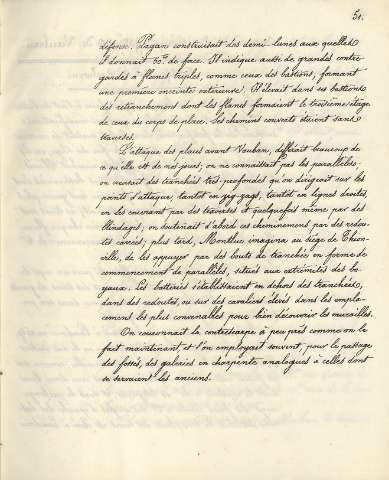 51.
défense. Pagan construisait des demi-lunes aux quelles
il donnait 50.m de face. Il indique aussi de grandes contre-
gardes à flancs triples, comme ceux des bastions, formant
une première enceinte extérieure. Il élevait dans ses bastions
des retranchements dont les flancs formaient le troisième étage
de ceux du corps de place. Ses chemins couverts étaient sans
traverses.
L'attaque des places avant Vauban, différait beaucoup de
ce qu'elle est de nos jours; on ne connaissait pas les parallèles:
on creusait des tranchées très-profondes qu'on dirigeait sur les
points d'attaque, tantôt en zig-zags, tantôt en lignes droites,
en les couvrant par des traverses et quelquefois même par des
blindages; on soutenait d'abord ces cheminements par des redou-
tes carrées; plus tard, Montluc imagina au siège de Thion-
ville, de les appuyer par des bouts de tranchée en forme de
commencement de parallèles, situés aux extrémités des bo-
yaux. Les batteries s'établissaient en dehors des tranchées,
dans des redoutes, ou sur des cavaliers élevés dans les empla-
cements les plus convenables pour bien découvrir les murailles.
On couronnait la contrescarpe à peu près comme on le
fait maintenant, et l'on employait souvent, pour le passage
des fossés, des galeries en charpente analogues à celles dont
se servaient les anciens.